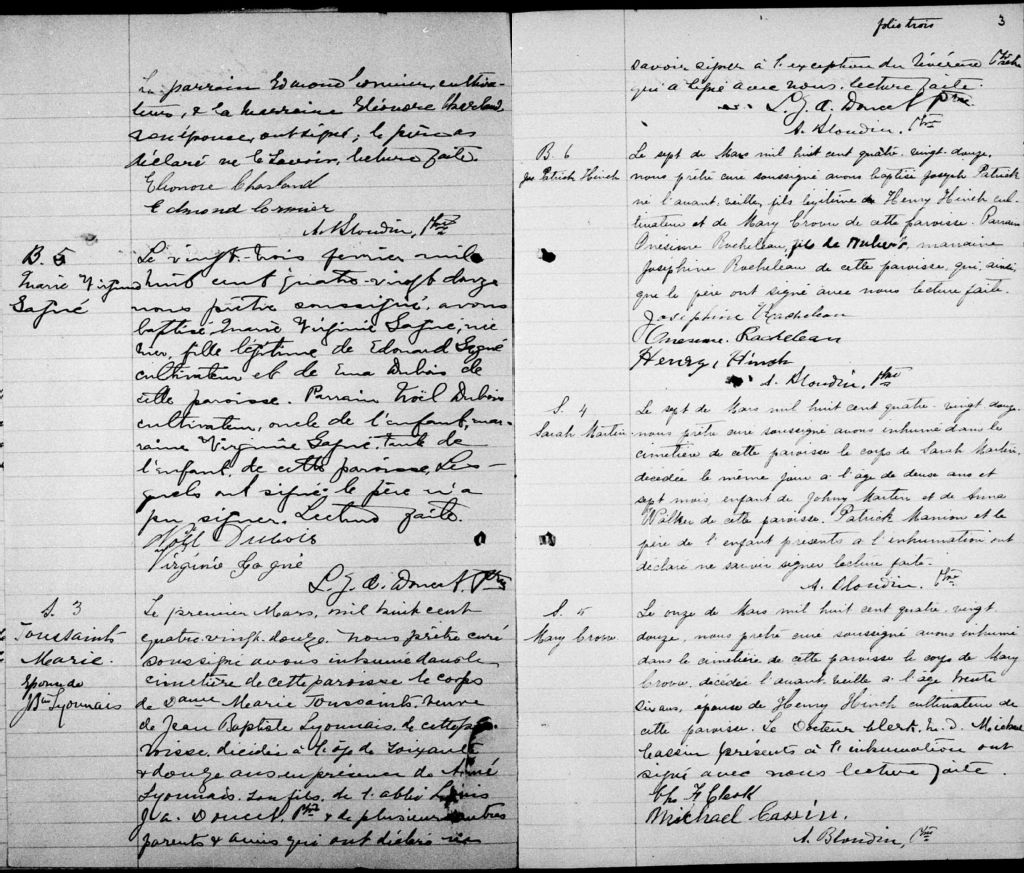 Le parrain Edmond Cormier, cultiva-
teur, & la marraine Eléonore Charland
son épouse, ont signé; le père a
déclaré ne le savoir, lecture faite.
Eleonore Charland
Edmond Cormier
A. Blondin, Ptre
B. 5
Marie Virginie
Gagné
Le vingt-trois fevrier mil
huit cent quatre-vingt douze
nous prêtre soussigné, avons
baptisé Marie Virginie Gagné, née
hier, fille légitime de Edouard Gagné
cultivateur et de Ema Dubois de
cette paroisse. Parrain Noël Dubois
cultivateur, oncle de l'enfant, mar-
raine Virginie Gagné tante de
l'enfant de cette paroisse, Les-
quels ont signé le père n'a
pu signer. Lecture faite.
Noël Dubois
Virginie Gagné
L. J. A. Doucet, Ptre
S. 3
Toussaint
Marie.
Epouse de
J Bte Lyonnais
Le premier Mars, mil huit cent
quatre-vingt-douze nous prêtre curé
soussigné avons inhumé dans le
cimetière de cette paroisse le corps
de Dame Marie Toussaint, veuve
de Jean Baptiste Lyonnais, de cette pa-
roisse, décédée à l'âge de soixante
& douze ans en présence de Aimé
Lyonnais son fils, de l'abbé Louis
J. A. Doucet, Ptre & de plusieurs autres
parents & amis qui ont déclaré ne
folio trois
3
savoir signer à l'exception du Révérend Ptre
qui a signé avec nous, lecture faite.
L. J. A. Doucet Ptre
A. Blondin, Ptre
B. 6
Jos Patrick Hinch
Le sept de Mars mil huit cent quatre-vingt-douze,
nous prêtre curé soussigné avons baptisé Joseph Patrick
né l'avant-veille, fils légitime de Henry Hinch cul-
tivateur et de Mary Crowe de cette paroisse. Parrain
Onesime Rocheleau, fils de marraine
Joséphine Rocheleau de cette paroisse, qui, ainsi
que le père ont signé avec nous lecture faite.
Joséphine Rocheleau
Onesime Rocheleau
Henry Hinch
A. Blondin, Ptre
S. 4
Sarah Martin
Le sept de Mars mil huit cent quatre-vingt douze
nous prêtre curé soussigné avons inhumé dans le
cimetière de cette paroisse le corps de Sarah Martin,
décédée le même jour à l'âge de deux ans et
sept mois, enfant de Johny Martin et de Anna
Walker de cette paroisse. Patrick Manion et le
père de l'enfant présents a l'inhumation ont
déclaré ne savoir signer lecture faite.
A. Blondin, Ptre
S. 5
Mary Crowe
Le onze de Mars mil huit cent quatre-vingt
douze, nous prêtre curé soussigné avons inhumé
dans le cimetière de cette paroisse le corps de Mary
Crowe, décédée l'avant-veille à l'âge trente
six ans, épouse de Henry Hinch cultivateur de
cette paroisse. Le Docteur Clark M.D. Michael
Cassin présents à l'inhumation ont
signé avec nous lecture faite.
Chs F Clark
Michael Cassin.
A. Blondin, Ptre